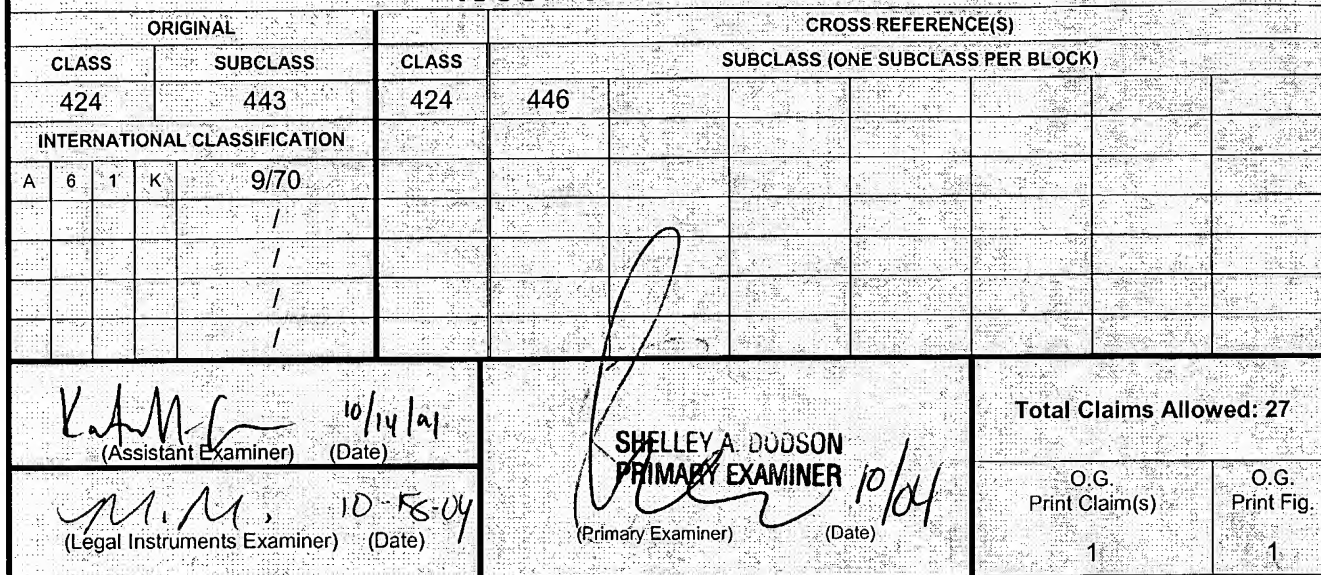 ORIGINAL CROSS REFERENCE(S)
CLASS SUBCLASS CLASS SUBCLASS (ONE SUBCLASS PER BLOCK)
424 443 424 446
INTERNATIONAL CLASSIFICATION
A 6 1 K 9/70
/
/
/
/
(Assistant Examiner) (Date)
M.M.
(Legal Instruments Examiner) (Date)
SHELLEY A. DODSON
PRIMARY EXAMINER 10/04
(Primary Examiner) (Date)
Total Claims Allowed: 27
O.G. O.G.
Print Claim(s) Print Fig.
1 1